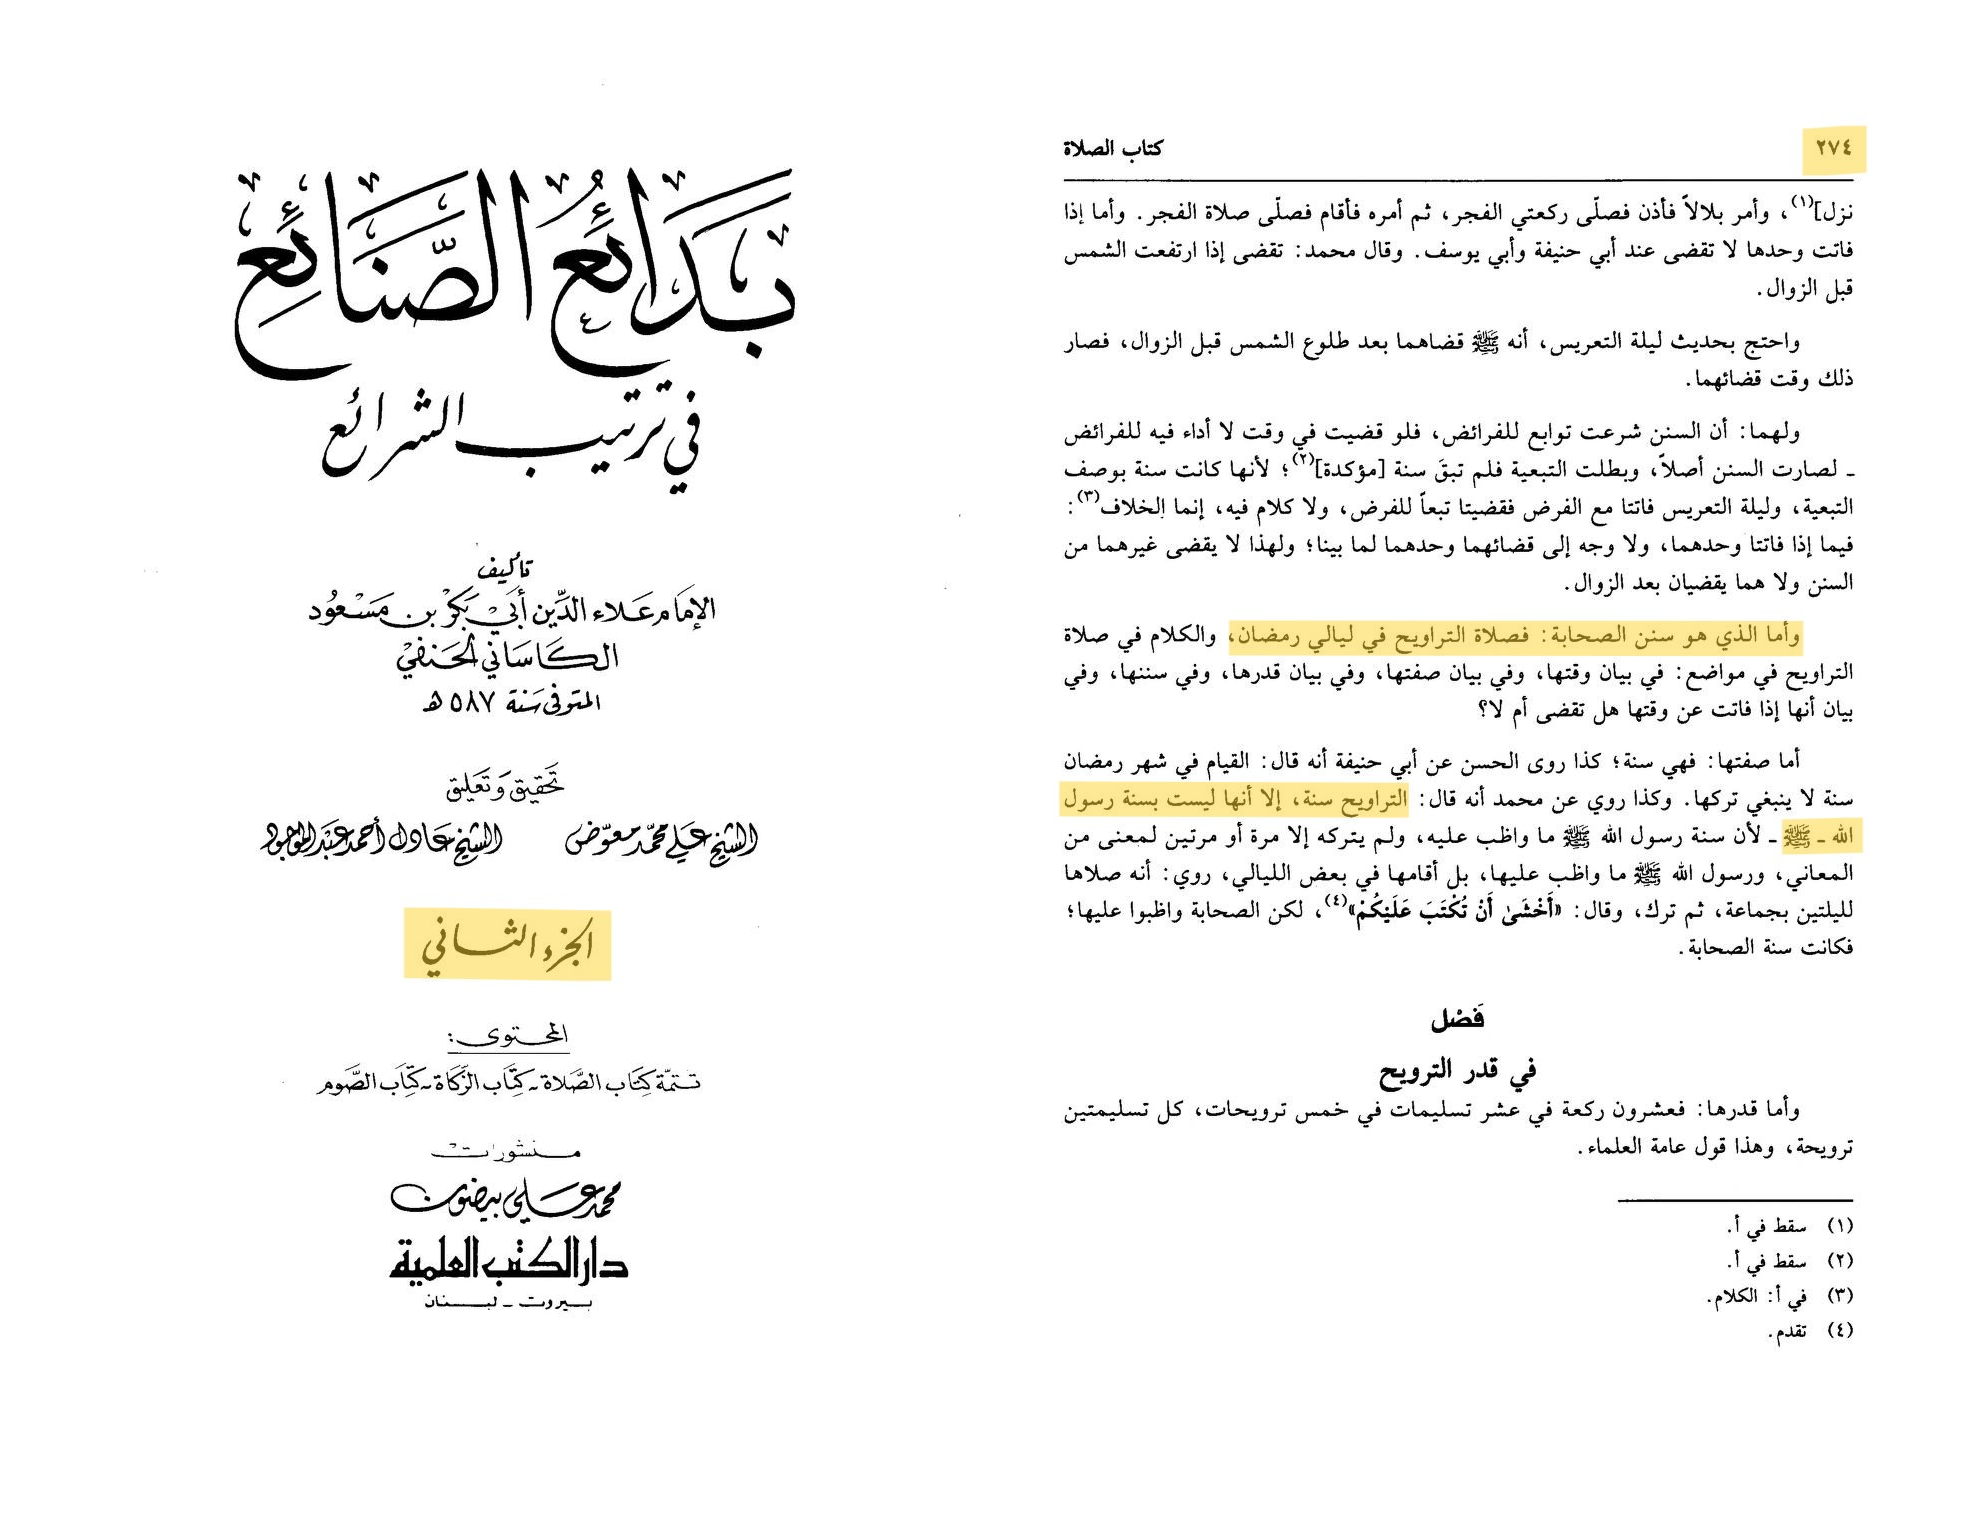 بَدَائِعُ الصَّنَائِعِ
في ترتيب الشرائع
تأليف
الإمَام عَلاء الدِّين أَبيْ بَكرْ بن مَسْعُود
الكَاسَاني الحَنفيْ
المتوفى سَنة ٥٨٧ هـ
تحَقيق وَتعَليق
الشيخ عَلي محمّد معوّض الشيخ عَادل أحمد عَبد الموجود
الجزء الثاني
المحتوى:
تتمّة كِتَاب الصَّلاة - كِتَاب الزَّكاة - كِتَاب الصَّوم
منشورات
محمد علي بيضون
دار الكتب العلمية
بيروت - لبنان
٢٧٤ كتاب الصلاة
نزل](١)، وأمر بلالاً فأذن فصلّى ركعتي الفجر، ثم أمره فأقام فصلّى صلاة الفجر. وأما إذا
فاتت وحدها لا تقضى عند أبي حنيفة وأبي يوسف. وقال محمد: تقضى إذا ارتفعت الشمس
قبل الزوال.
واحتج بحديث ليلة التعريس، أنه ﷺ قضاهما بعد طلوع الشمس قبل الزوال، فصار
ذلك وقت قضائهما.
ولهما: أن السنن شرعت توابع للفرائض، فلو قضيت في وقت لا أداء فيه للفرائض
ـ لصارت السنن أصلاً، وبطلت التبعية فلم تبقَ سنة [مؤكدة](٢)؛ لأنها كانت سنة بوصف
التبعية، وليلة التعريس فاتتا مع الفرض فقضيتا تبعاً للفرض، ولا كلام فيه، إنما الخلاف(٣):
فيما إذا فاتتا وحدهما، ولا وجه إلى قضائهما وحدهما لما بينا؛ ولهذا لا يقضى غيرهما من
السنن ولا هما يقضيان بعد الزوال.
وأما الذي هو سنن الصحابة: فصلاة التراويح في ليالي رمضان، والكلام في صلاة
التراويح في مواضع: في بيان وقتها، وفي بيان صفتها، وفي بيان قدرها، وفي سننها، وفي
بيان أنها إذا فاتت عن وقتها هل تقضى أم لا؟
أما صفتها: فهي سنة؛ كذا روى الحسن عن أبي حنيفة أنه قال: القيام في شهر رمضان
سنة لا ينبغي تركها. وكذا روي عن محمد أنه قال: التراويح سنة، إلا أنها ليست بسنة رسول
الله ـ ﷺ ـ لأن سنة رسول الله ﷺ ما واظب عليه، ولم يتركه إلا مرة أو مرتين لمعنى من
المعاني، ورسول الله ﷺ ما واظب عليها، بل أقامها في بعض الليالي، روي: أنه صلاها
لليلتين بجماعة، ثم ترك، وقال: «أَخْشَىٰ أَنْ تُكْتَبَ عَلَيْكُمْ»(٤)، لكن الصحابة واظبوا عليها؛
فكانت سنة الصحابة.
فَصْل
في قدر الترويح
وأما قدرها: فعشرون ركعة في عشر تسليمات في خمس ترويحات، كل تسليمتين
ترويحة، وهذا قول عامة العلماء.
(١) سقط في أ.
(٢) سقط في أ.
(٣) في أ: الكلام.
(٤) تقدم.